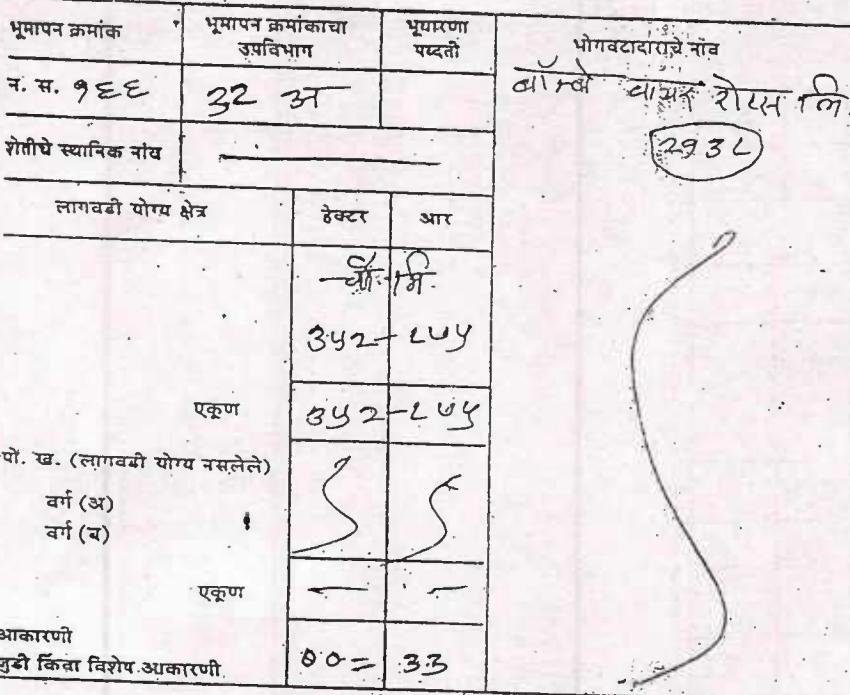 भूमापन क्रमांक
भूमापन क्रमांकाचा उपविभाग
भूधारणा पध्दती
भोगवटादाराचे नांव
न. स. १६६
32 अ
बॉम्बे वायर रोप्स लि.
२१३८
शेतीचे स्थानिक नांव
लागवडी योग्य क्षेत्र
हेक्टर
आर
चौ. मि.
३५२-८७५
एकूण
३५२-८७५
पो. ख. (लागवडी योग्य नसलेले)
वर्ग (अ)
वर्ग (ब)
एकूण
आकारणी
जुडी किंवा विशेष आकारणी
००= ३३